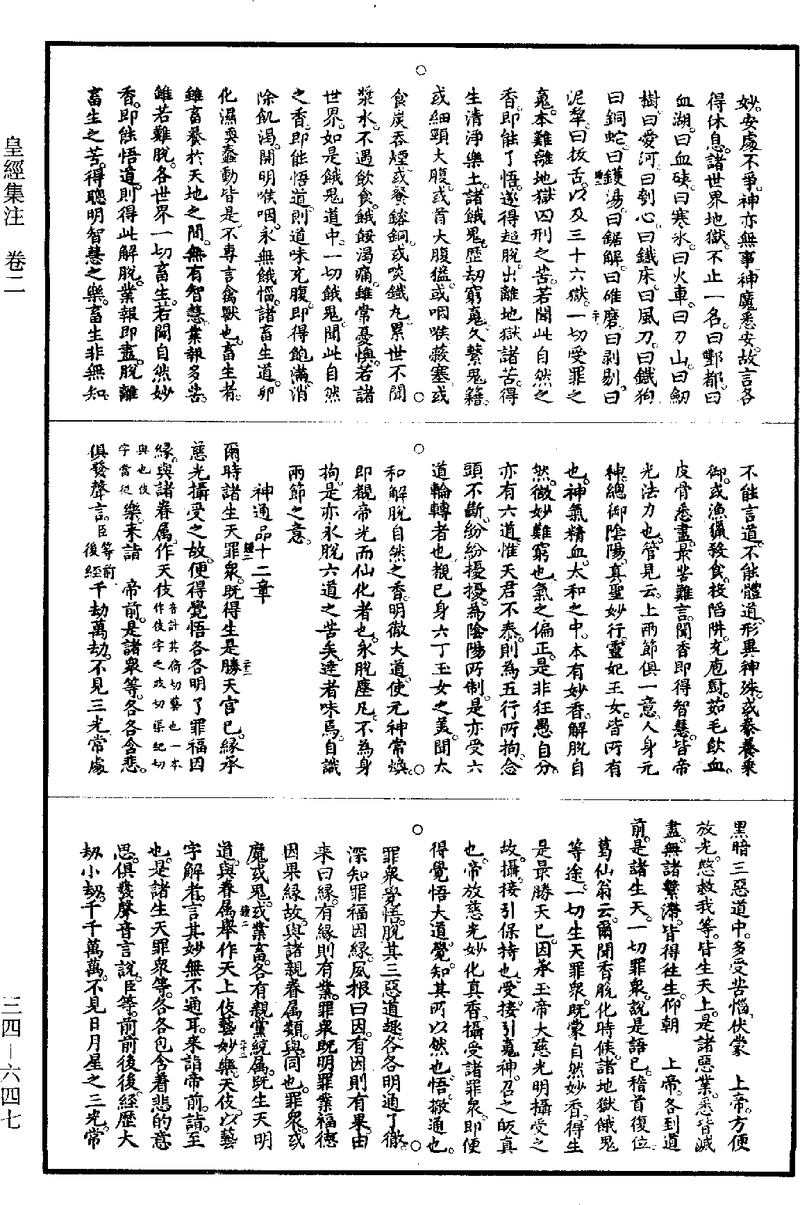 妙。安處不爭。神亦無事。神魔悉安。故言各
得休息。諸世界地獄。不止一名。曰酆都。曰
血湖。曰血硤。曰寒氷。曰火車。曰刀山。曰劒
樹。曰愛河。曰刳心。曰鐵床。曰風刀。曰鐵狗
曰銅蛇。曰鑊湯。曰鋸解。曰碓磨。曰剥剔。曰
泥犂。曰拔舌。以及三十六獄。一切受罪之
䰟。本難離地獄囚刑之苦。若聞此自然之
香。即能了悟。遂得超脫出離地獄諸苦。得
生清淨樂土。諸餓鬼。歷劫窮䰟。久繫鬼籍。
或細頸大腹。或首大腹猛。或咽喉蔽塞。或
食炭吞煙。或餐鎔銅。或啖鐵丸。累世不聞
漿水。不遇飲食。餓餒渴痛。雖常憂惱。若諸
世界。如是餓鬼道中。一切餓鬼。聞此自然
之香。即能悟道。則道味充腹。即得飽滿。消
除飢渴。開明喉咽。永無餓惱。諸畜生道。卵
化濕耎蠢動皆是。不專言禽獸也。畜生者。
雖畜養於天地之間。無有智慧。業報多苦。
雖若難脫。各世界一切畜生。若聞自然妙
香。即能悟道。則得此解脫。業報即盡。脫離
畜生之苦。得聰明智慧之樂。畜生非無知
不能言道。不能體道。形異神殊。或豢養乗
御。或漁獵發食。投陷阱。充庖厨。茹毛飲血。
皮骨悉盡。最苦難言。聞香即得智慧。皆帝
光法力也。管見云。上兩節俱一意。人身元
神。總御陰陽。真聖妙行。靈妃玉女。皆所有
也。神氣精血。太和之中。本有妙香。解脫自
然。微妙難窮也。氣之偏正。是非狂愚自分。
亦有六道。惟天君不泰。則為五行所拘。念
頭不斷。紛紛擾擾。為陰陽所制。是亦受六
道輪轉者也。覩已身六丁玉女之美。聞太
和解脫自然之香。明徹大道。使元神常煥。
即覩帝光而仙化者也。永脫塵凡。不為身
拘。是亦永脫六道之苦矣。達者味焉。自識
兩節之意。
神通品十二章
爾時諸生天罪衆。既得生是勝天官已。緣承
慈光攝受之故。便得覺悟。各各明了罪福因
緣。與諸眷属。作天伎
樂。來詣　帝前。是諸衆等。各各含悲。
俱發聲言。臣等前後經千劫萬劫。不見三光。常處
黑暗三惡道中。多受苦惱。伏蒙　上帝。方便
放光。慜救我等。皆生天上。是諸惡業。悉皆滅
盡。無諸繫滯。皆得徃生。仰朝　上帝。各到道
前。是諸生天。一切罪衆。說是語已。稽首復位。
葛仙翁云。爾聞香脫化時候。諸地獄餓鬼
等途。一切生天罪衆。既蒙自然妙香。得生
是最勝天已。因承玉帝大慈光明攝受之
故。攝。接引保持也。受。接引䰟神。召之皈真
也。帝放慈光。妙化真香。攝受諸罪衆。即便
得覺悟大道。覺。知其所以然也。悟。徹通也。
罪衆覺悟。脫其三惡道趣。各各明通了徹。
深知罪福因緣。夙報曰因。有因則有果。由
來曰緣。有緣則有業。罪衆既明罪業福德
因果緣故。與諸親眷属類。與。同也。罪衆。或
魔。或鬼。或業畜。各有親黨統属。既生天明
道。與眷属舉作天上伎藝妙樂。天伎。以藝
字解者。言其妙無不通耳。來詣帝前。詣。至
也。是諸生天罪衆等。各各包含着悲的意
思。俱發聲音言說。臣等。前前後後經歷大
劫小劫。千千萬萬。不見日月星之三光。常
皇經集注　卷二
三四—六四七